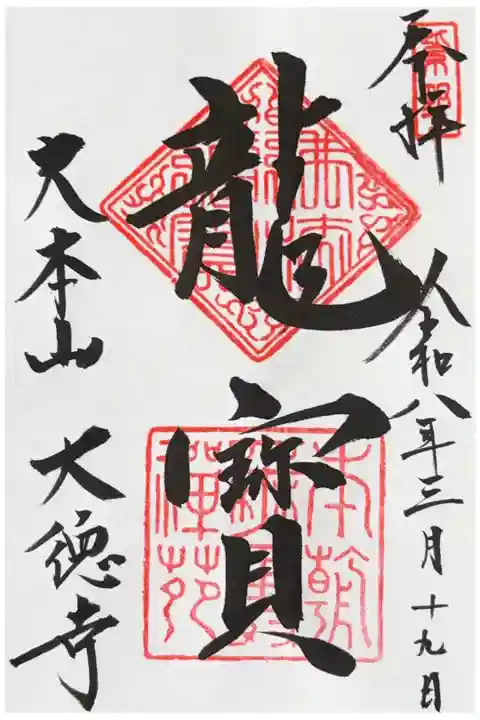 奉拝
令和八年三月十九日
龍寳
大本山 大徳寺
本朝
禅苑